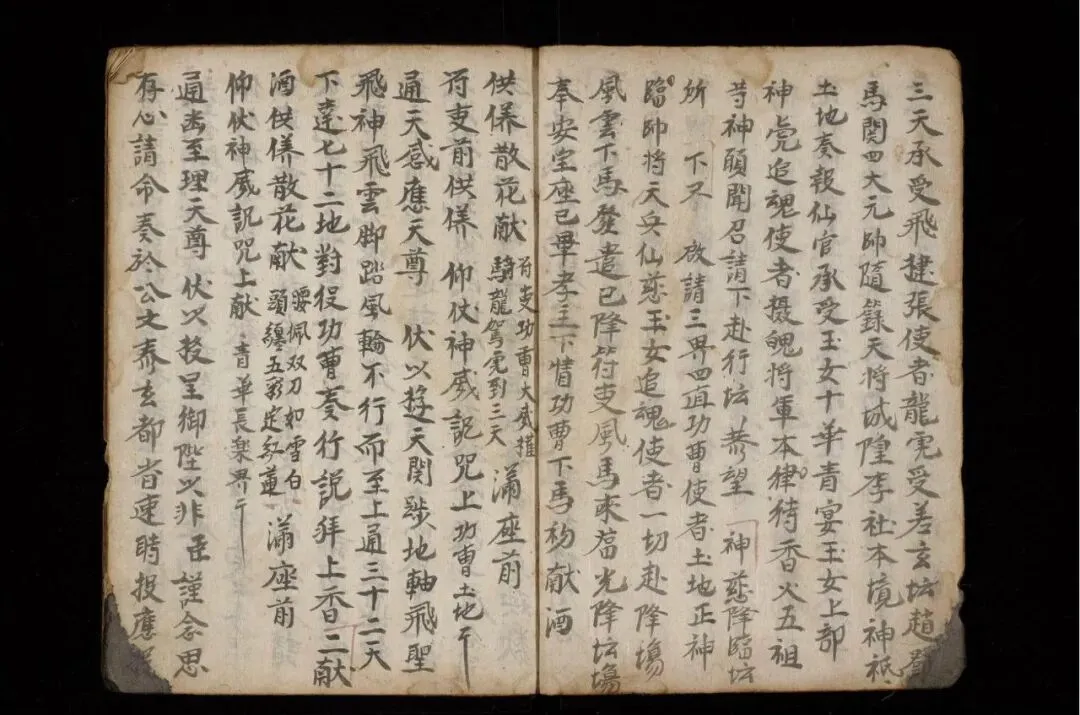 三天承受飛捷張使者龍虎受差玄坛趙鄧
馬関四大元帥隨籙天将城隍李社本境神祇
土地奏報仙官承受玉女十華青宴玉女上部
神虎追魂使者摄魄將軍本律待香火五祖
等神願聞召請下赴行坛恭望 神慈降臨坛
所 下又 啟請三界四直功曹使者土地正神
臨帥将天兵仙慈玉女追魂使者一切赴降塲
風雲下馬發遣已降符吏風馬來當光降坛塲
奉安宝座已畢孝主下情功曹下馬初献酒
供俻散花献 符吏功曹大威權 騎龍駕虎到三天 滿座前
符吏前供俻 仰仗神威訊咒上功曹土地亍
通天感應天尊 伏以逰天関踄地軸飛聖
飛神飛雲脚踏風輪不行而至上通三十二天
下達七十二地對役功曹奏行説拜上香二献
酒供俻散花献 腰佩双刀如雪白 頭纏五彩定紅蓮 滿座前
仰仗神威訊咒上献 青華長楽界亍
通幽至理天尊 伏以投呈御陛以非臣謹念思
存心請命奏於公文奏玄都省速聘投應